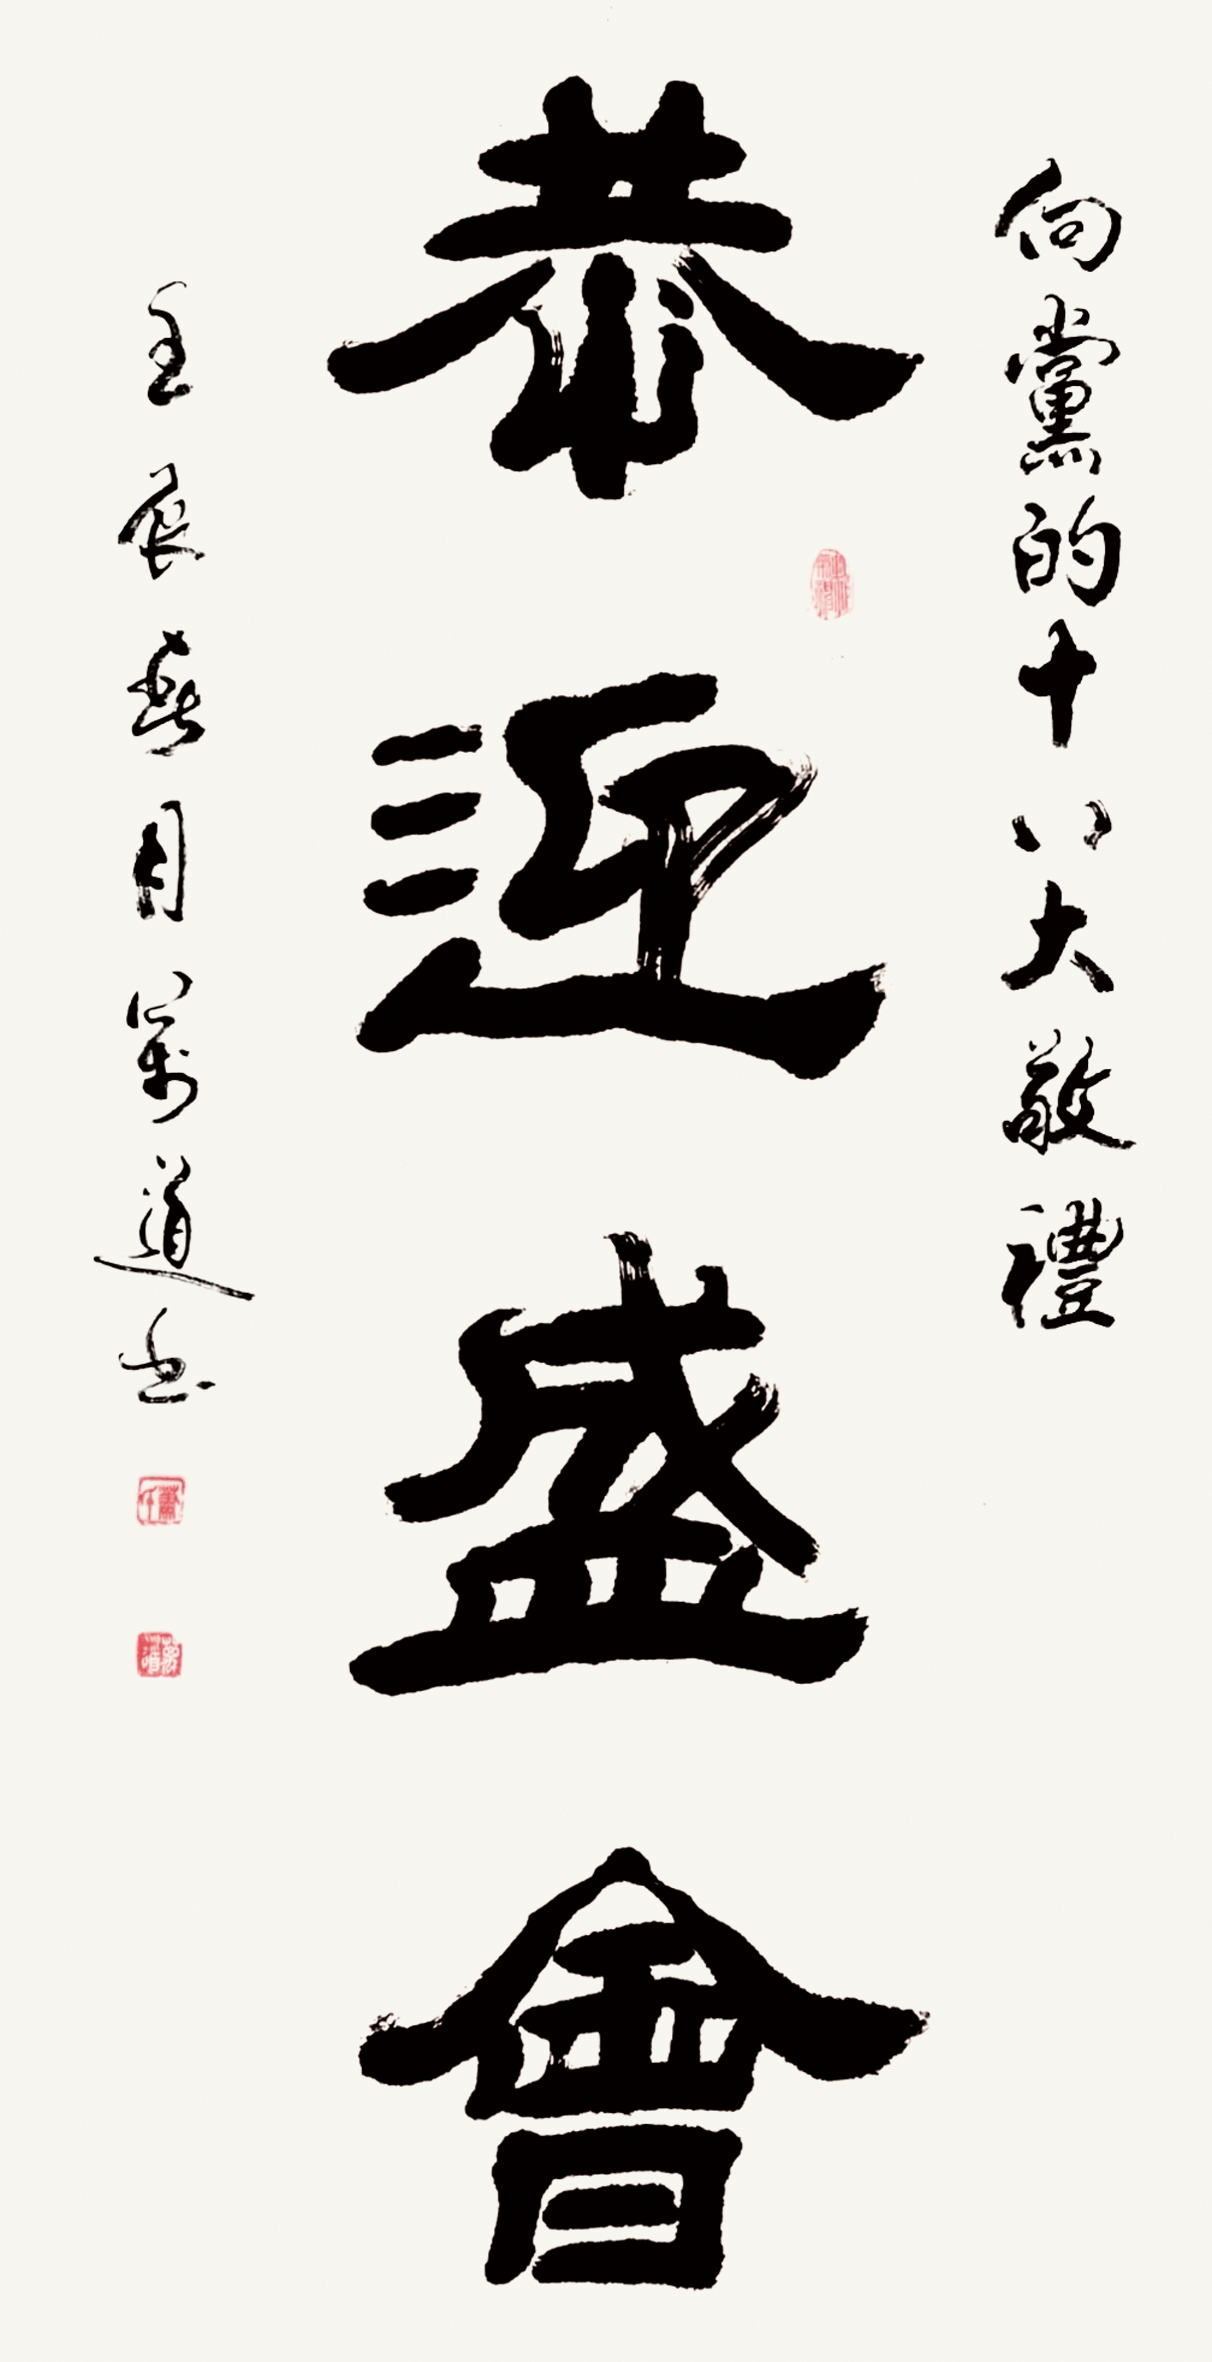 向黨的十八大敬禮
恭迎盛會
壬辰春月萬道書